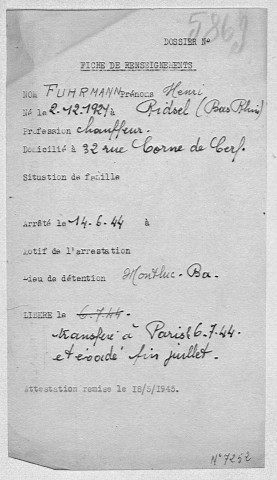 5863
DOSSIER N°
FICHE DE RENSEIGNEMENTS
NOM FUHRMANN Prénoms Henri
Né le 2.12.1921 à Ridsel (Bas Rhin)
Profession chauffeur.
Domicilié à 32 rue Corne de Cerf.
Situation de famille
Arrêté le 14.6.44 à
Motif de l'arrestation
Lieu de détention Montluc - Ba.
LIBERE le 6.7.44
transféré à Paris 6.7.44.
et évadé fin juillet.
Attestation remise le 18/5/1945.
N° 7252